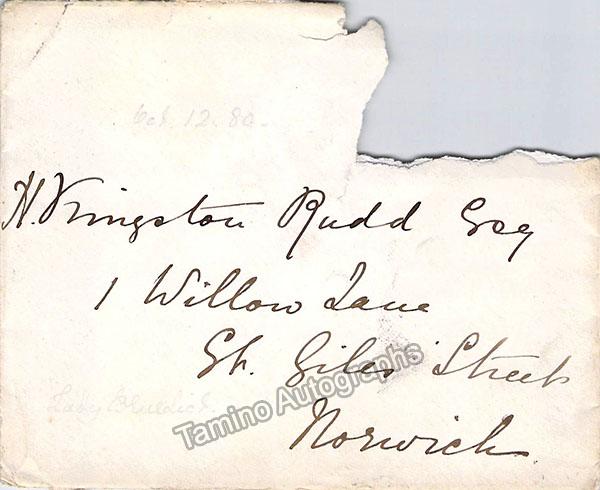 Oct. 12. 80.
H. Kingston Rudd Esq
1 Willow Lane
St. Giles Street
Lady
Norwich
Tamino Autographs